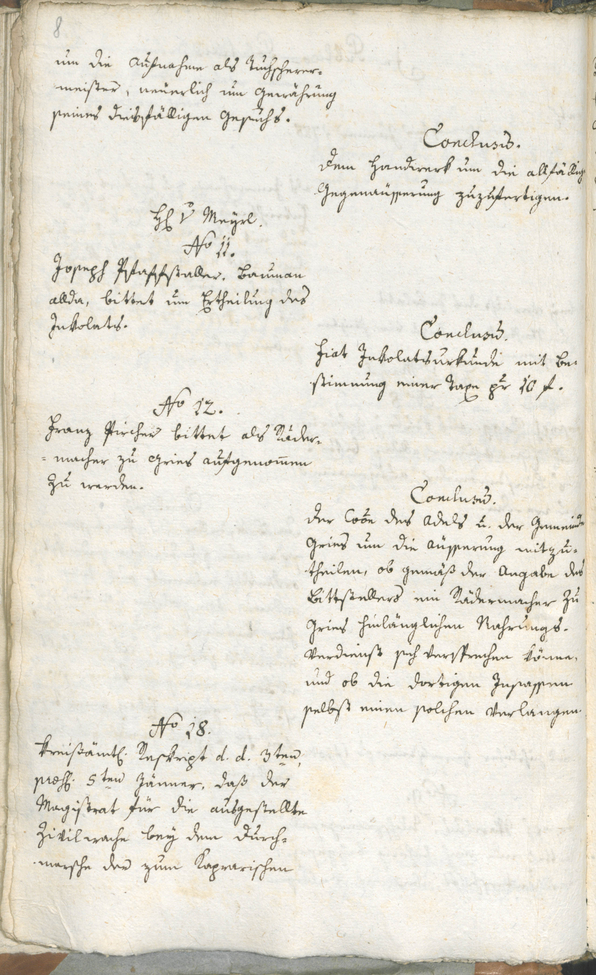 8
um die Aufnahme als Tuchscherer-
meister, neuerlich um Gewährung
seines diesfälligen Gesuchs.
Conclusum.
Dem Handwerk um die allfällig
Gegenäusserung zuzufertigen.
H v Meyrl.
No 11.
Joseph Pfaffstaller. Bauman
allda, bittet um Ertheilung des
Inkolats.
Conclusum.
Fiat Inkolatsurkunde mit Be-
stimmung einer Taxe pr 10 f.
No 12.
Franz Pircher bittet als Räder-
=macher zu Gries aufgenom̄en
zu werden.
Conclusum.
Der Coōe des Adels u. der Gemeinde
Gries um die Äusserung mitzu-
theilen, ob gemäß der Angabe des
Bittstellers ein Rädermacher zu
Gries hinlänglichen Nahrungs-
verdienst sich versprechen könne,
und ob die dortigen Insassen
selbst einen solchen verlangen
No 18.
Kreisämtl. Reskript d. d. 3ten,
præs. 5ten Jänner, daß der
Magistrat für die ausgestellte
Zivilwache bey dem Durch-
marsche der zum Kaprarischen